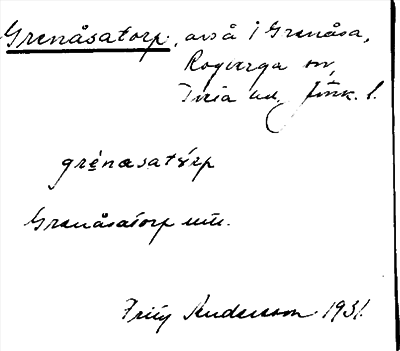 Grenåsatorp, avså i Grenåsa,
Rogberga sn,
Tveta hd, Jönk. l.
grénasatårp
Grenåsatorp uttr.
Fritz Andersson 1931.